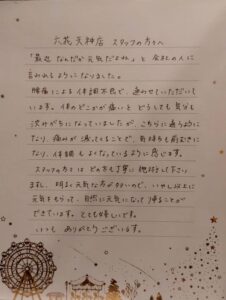 六花天神店 スタッフの方々へ
「最近 なんだか元気だよね」と 会社の人に
言われるようになりました。
腰痛による体調不良で、通わせていただいて
います。体のどこかが痛いと どうしても気分も
沈みがちになっていましたが、こちらに通うように
なり、痛みが減ってくることで、気持ちも前向きに
なり、体調もよくなっているように感じます。
スタッフの方々は どの方も丁寧に施術して下さい
ますし、明るく元気な方が多いので、いやし以上に
元気をもらって、自然に元気になって帰ることが
できています。とても嬉しいです。
いつも ありがとうございます。